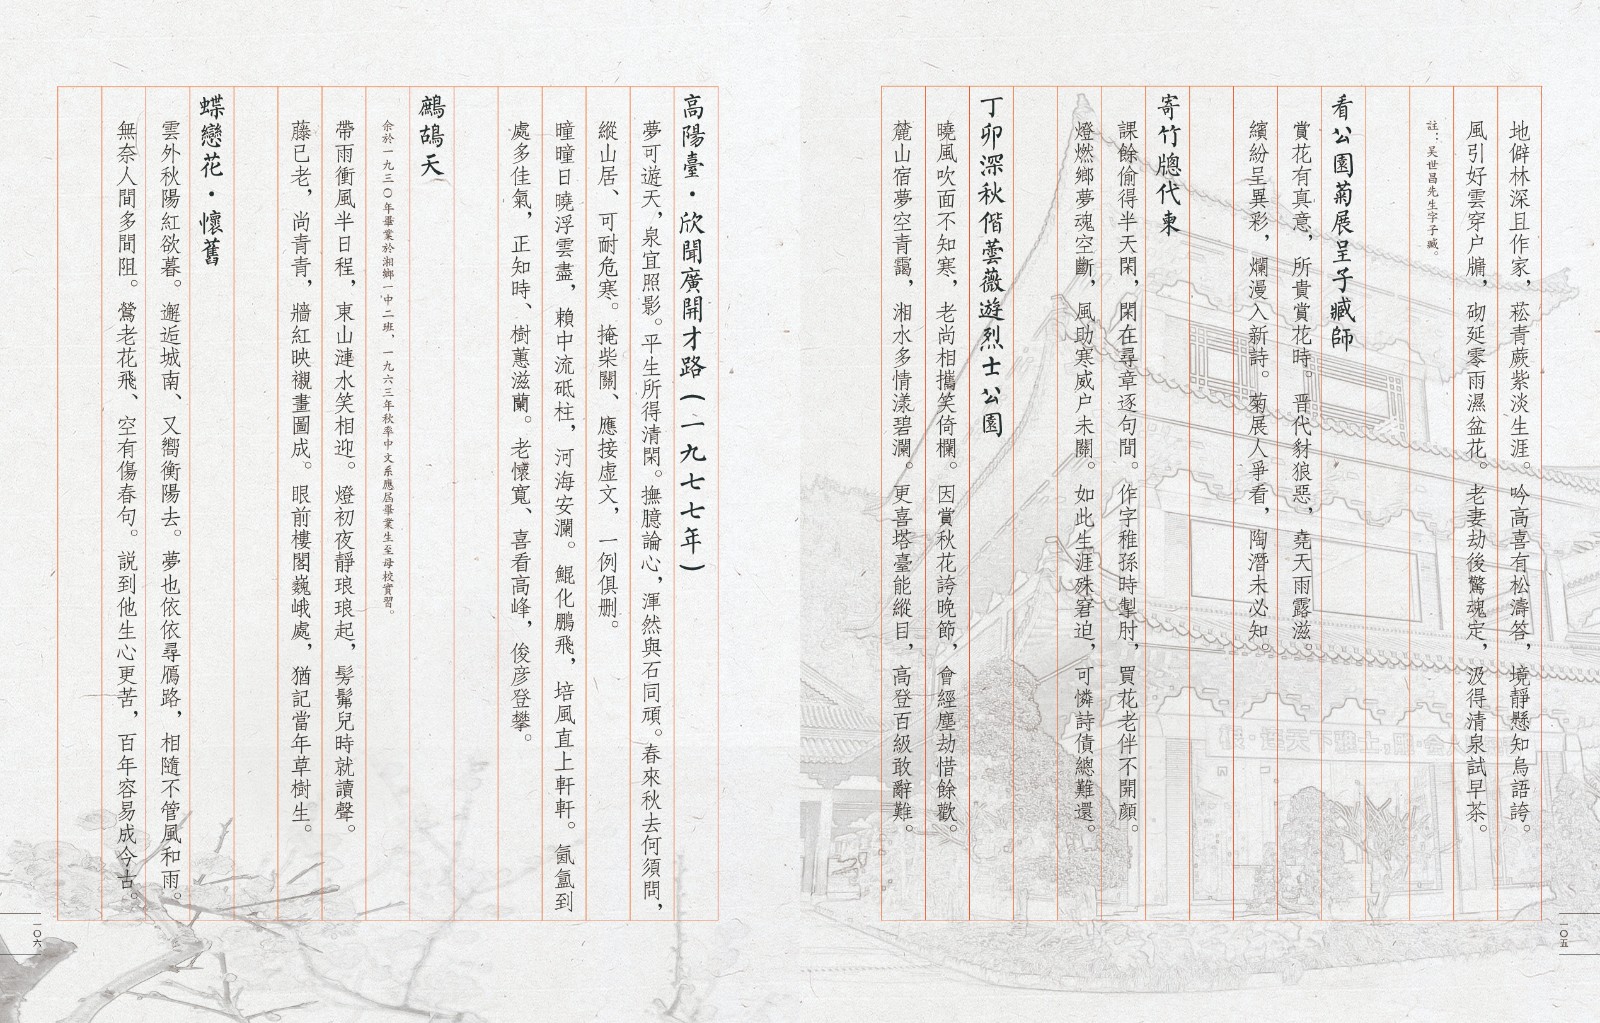 地僻林深且作家，菘青蕨紫淡生涯。吟高喜有松濤答，境靜懸知鳥語誇。
風引好雲穿户牖，砌延零雨濕盆花。老妻劫後驚魂定，汲得清泉試早茶。
註：吴世昌先生字子臧。
看公園菊展呈子臧師
賞花有真意，所貴賞花時。晋代豺狼惡，堯天雨露滋。
繽紛呈異彩，爛漫入新詩。菊展人爭看，陶潛未必知。
寄竹牕代柬
課餘偷得半天閑，閑在尋章逐句間。作字稚孫時掣肘，買花老伴不開顔。
燈燃鄉夢魂空斷，風助寒威户未關。如此生涯殊窘迫，可憐詩債總難還。
丁卯深秋偕蕓薇遊烈士公園
曉風吹面不知寒，老尚相攜笑倚欄。因賞秋花誇晚節，會經塵劫惜餘歡。
麓山宿夢空青靄，湘水多情漾碧瀾。更喜塔臺能縱目，高登百級敢辭難。
一〇五
高陽臺·欣聞廣開才路(一九七七年)
夢可遊天，泉宜照影。平生所得清閑。撫臆論心，渾然與石同頑。春來秋去何須問，
縱山居、可耐危寒。掩柴關、應接虛文，一例俱删。
曈曈日曉浮雲盡，賴中流砥柱，河海安瀾。鯤化鵬飛，培風直上軒軒。氤氳到
處多佳氣，正知時、樹蕙滋蘭。老懷寬、喜看高峰，俊彦登攀。
鷓鴣天
余於一九三〇年畢業於湘鄉一中二班，一九六三年秋率中文系應屆畢業生至母校實習。
帶雨衝風半日程，東山漣水笑相迎。燈初夜靜琅琅起，髣髴兒時就讀聲。
藤已老，尚青青，牆紅映襯畫圖成。眼前樓閣巍峨處，猶記當年草樹生。
蝶戀花·懷舊
雲外秋陽紅欲暮。邂逅城南、又嚮衡陽去。夢也依依尋鴈路，相隨不管風和雨。
無奈人間多間阻。鶯老花飛、空有傷春句。説到他生心更苦，百年容易成今古。
一〇六